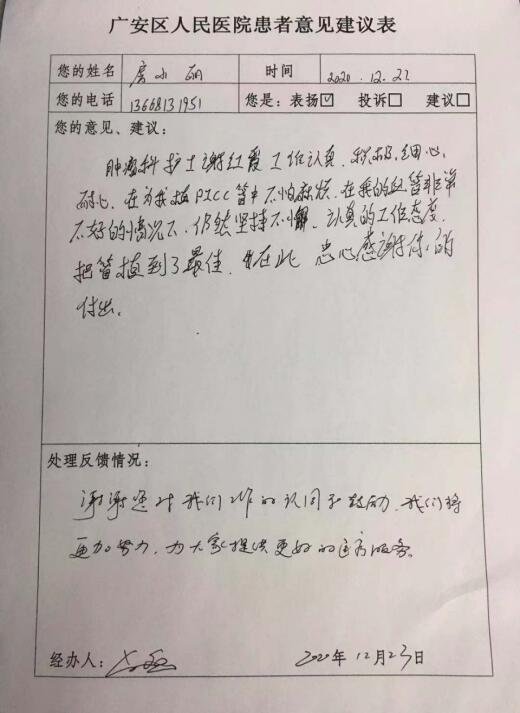 广安区人民医院患者意见建议表
您的姓名 房小丽 时间 2020.12.22
您的电话 13668131951 您是：表扬☑ 投诉□ 建议□
您的意见、建议：
肿瘤科护士谢红爱工作认真、积极、细心、
耐心、在为我植PICC管中不怕麻烦、在我的血管非常
不好的情况下、仍然坚持不懈、认真的工作态度、
把管植到了最佳、在此 忠心感谢你的
付出。
处理反馈情况：
谢谢您对我们工作的认同和鼓励，我们将
更加努力，为大家提供更好的医疗服务。
经办人： 2020年12月23日